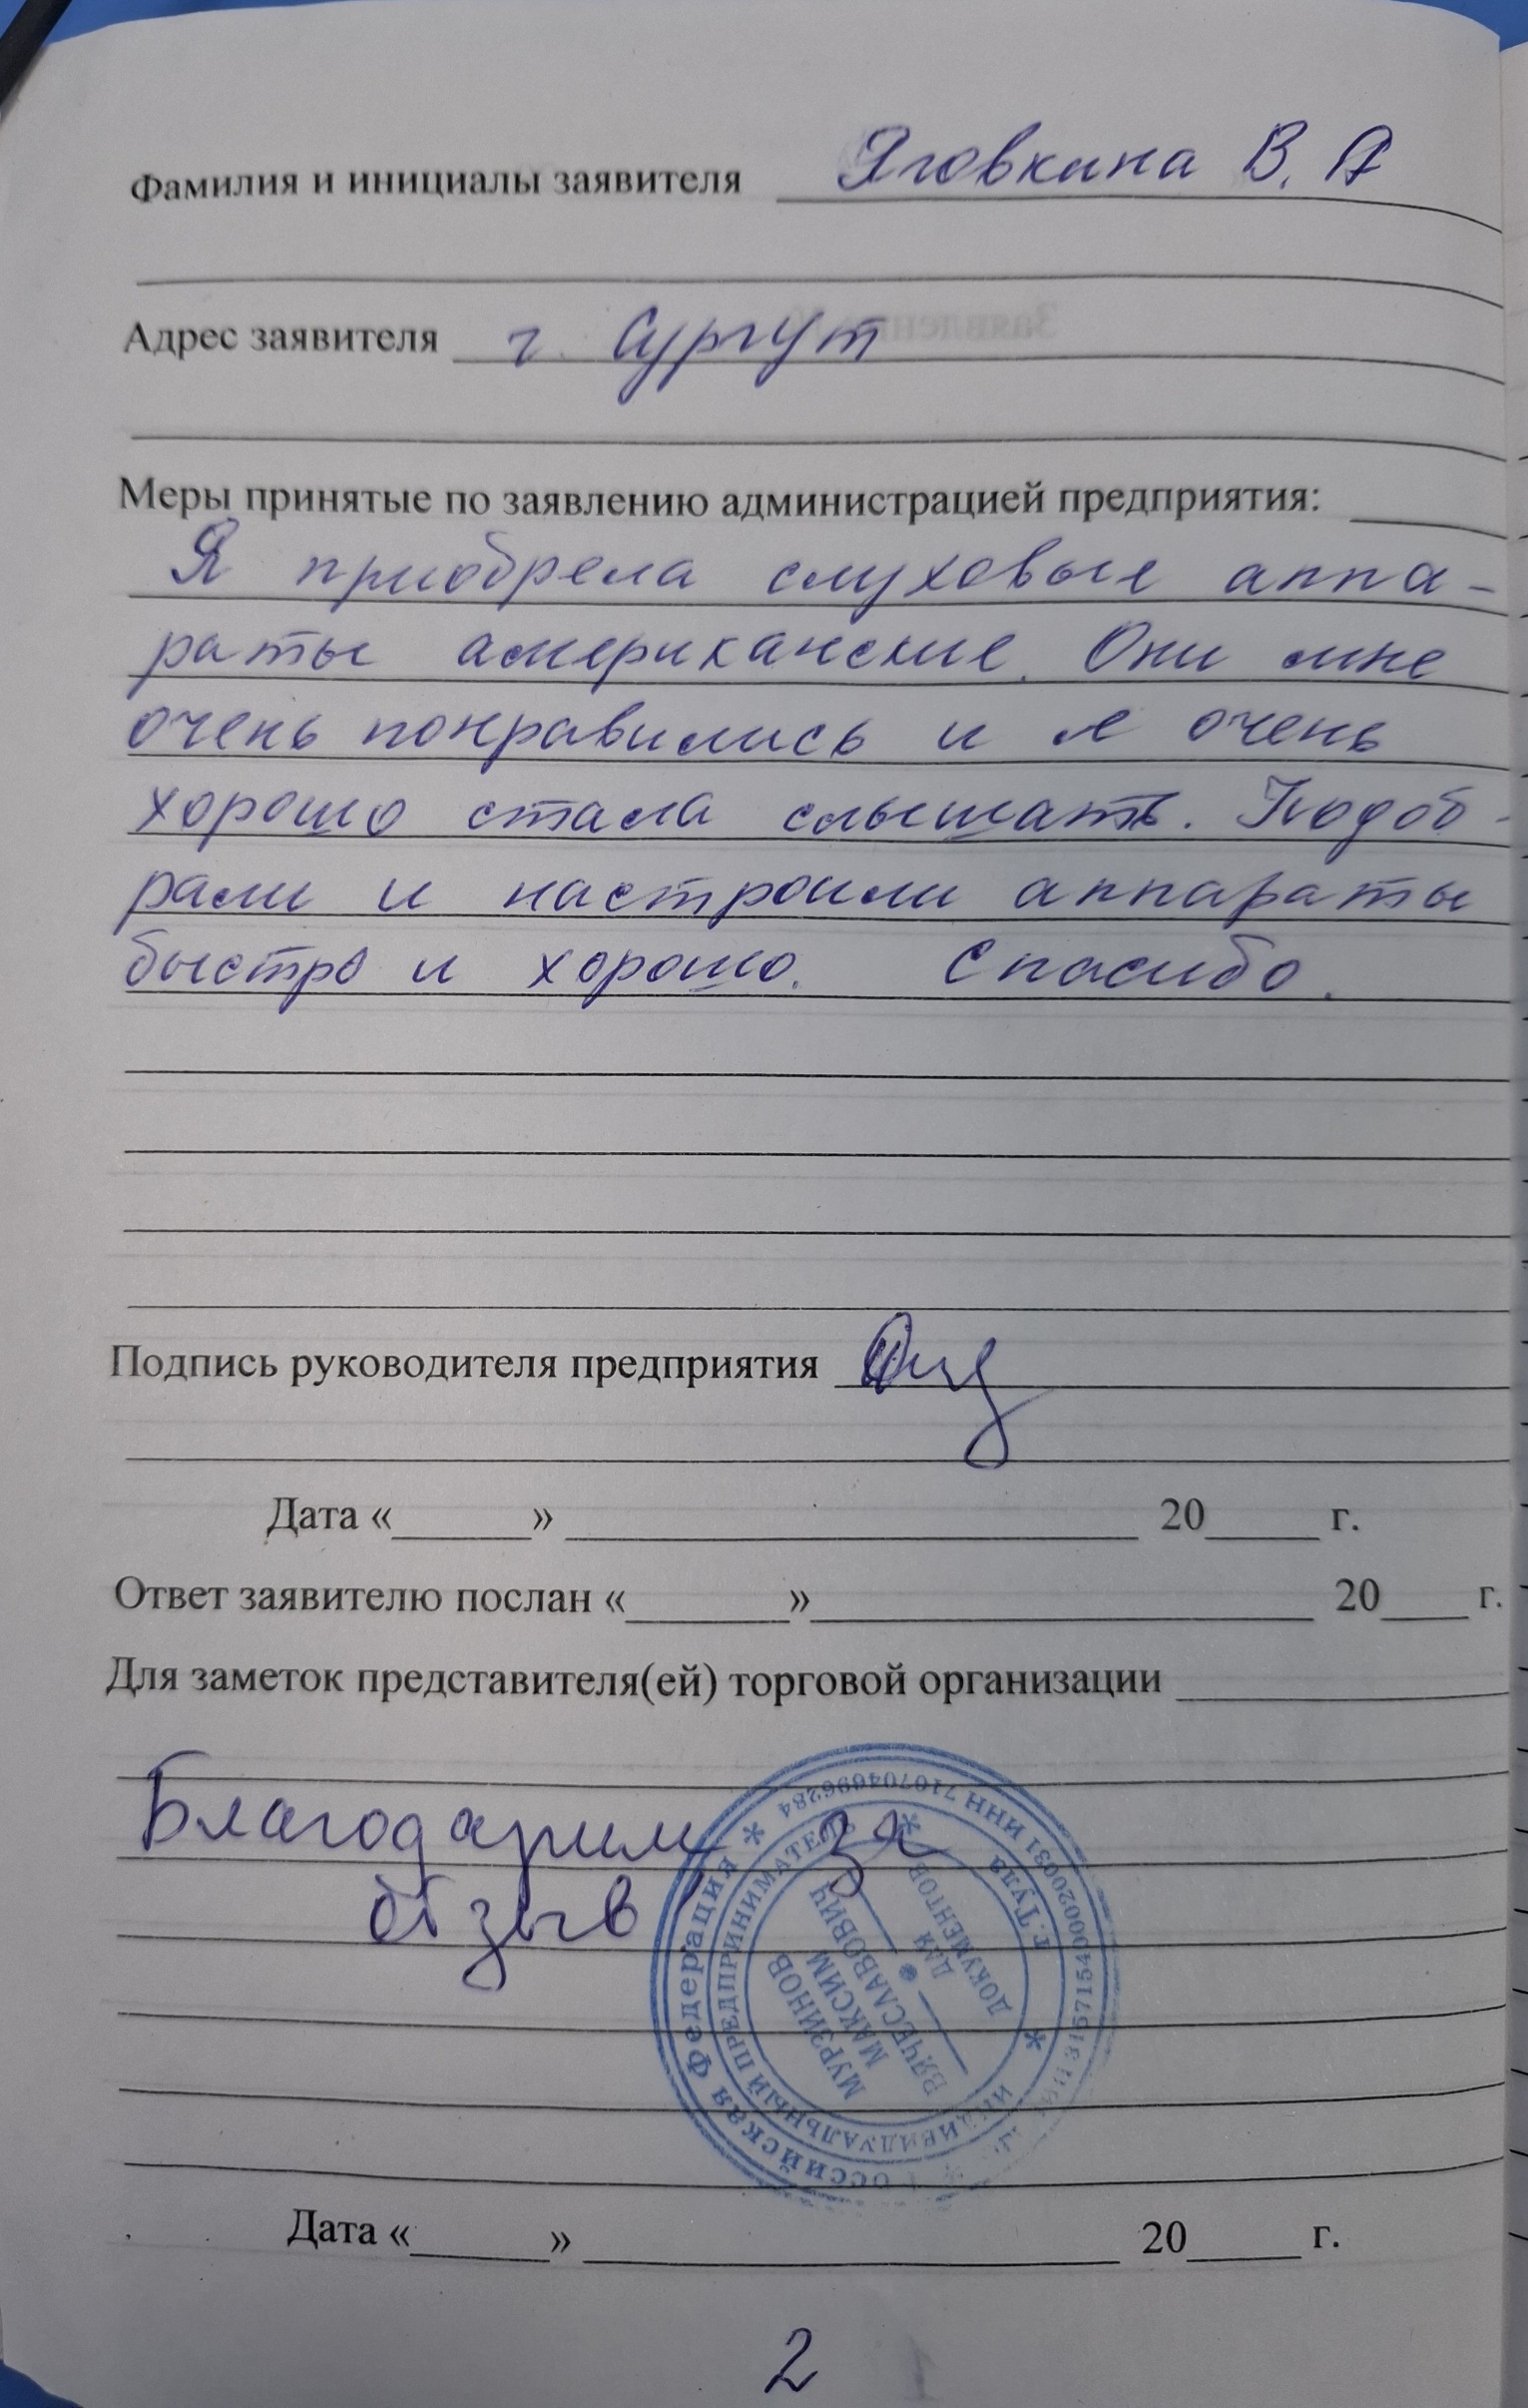 Фамилия и инициалы заявителя Яговкина В. А
Адрес заявителя г. Сургут
Меры принятые по заявлению администрацией предприятия:
Я приобрела слуховые аппа-
раты американские. Они мне
очень понравились и я очень
хорошо стала слышать. Подоб-
рали и настроили аппараты
быстро и хорошо. Спасибо.
Подпись руководителя предприятия
Дата «______» ______ 20____ г.
Ответ заявителю послан «______» ______ 20____ г.
Для заметок представителя(ей) торговой организации
Благодарим за
отзыв!
Российская Федерация * ИНН 710704696284
ИНДИВИДУАЛЬНЫЙ ПРЕДПРИНИМАТЕЛЬ * г. Тула *
МУРЗИНОВ
МАКСИМ
ВЯЧЕСЛАВОВИЧ
ДЛЯ
ДОКУМЕНТОВ
Дата «______» ______ 20____ г.
2